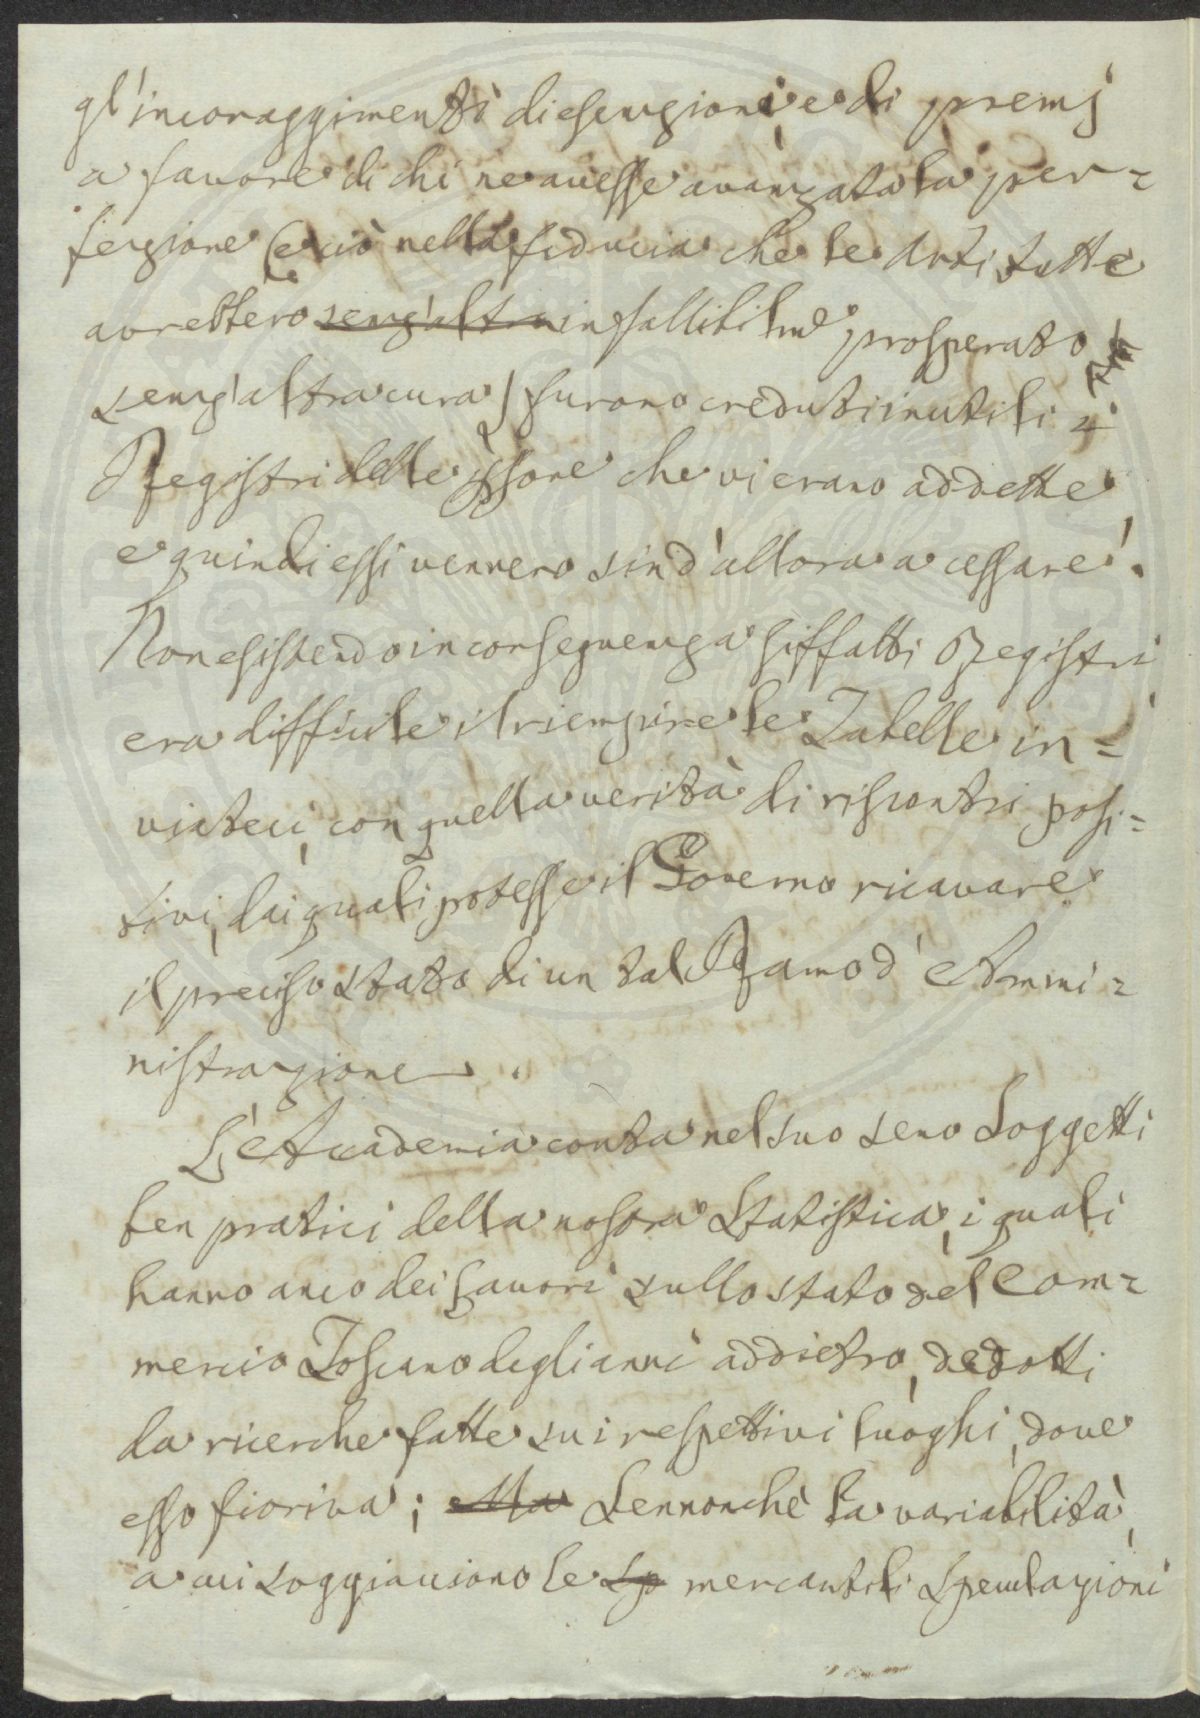 gl'incoraggimenti di esenzioni, e di premj
a favore di chi ne avesse avanzata la per=
fezione (e ciò nella fiducia che le Arti tutte
avrebbero senz'altro infallibilme prosperato
senz'altra cura) furono creduti inutili i
Registri delle pSsone che vi erano addette,
e quindi essi vennero sin d'allora a cessare.
Non esistendo in conseguenza siffatti Registri
era difficile il riempire le Tabelle in=
viateci, con quella verità di riscontri posi=
tivi, dai quali potesse il Governo ricavare
il preciso stato di un tal Ramo d'Ammi=
nistrazione.
L'Accademia conta nel suo seno Soggetti
ben pratici della nostra Statistica, i quali
hanno anco dei Lavori sullo stato del Com=
mercio Toscano degli anni addietro, dedotti
da ricerche fatte sui respettivi luoghi, dove
esso fioriva; Ma Sennonchè la variabilità,
a cui soggiacciono le sp mercantili speculazioni